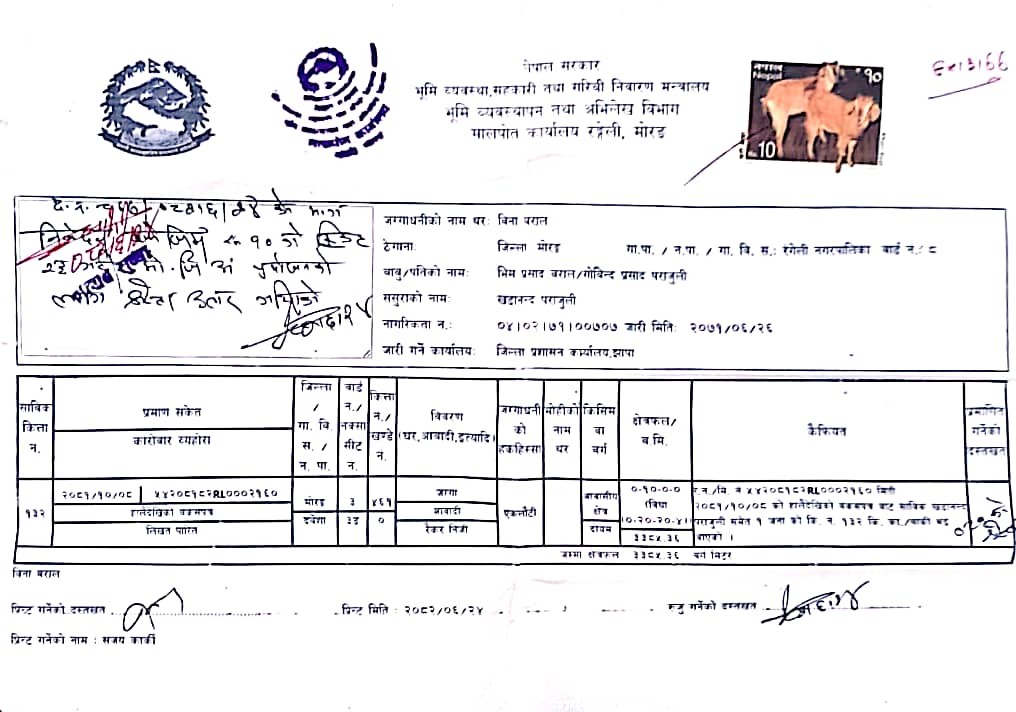 नेपाल सरकार
भूमि व्यवस्था,सहकारी तथा गरिवी निवारण मन्त्रालय
भूमि व्यवस्थापन तथा अभिलेख विभाग
मालपोत कार्यालय रङ्गेली, मोरङ
नेपाल १०
Nepal
10
जग्गाधनीको नाम थर: विना बराल
ठेगाना: जिल्ला मोरङ गा.पा. / न.पा. / गा. वि. स.: रंगेली नगरपालिका वार्ड न.: ८
बाबु/पतिको नाम: भिम प्रसाद बराल/गोबिन्द प्रसाद पराजुली
ससुराको नाम: खड्गनन्द पराजुली
नागरिकता न.: ०४।०२।७१।००७०७ जारी मिति: २०७१/०६/२६
जारी गर्ने कार्यालय: जिल्ला प्रशासन कार्यालय,झापा
साविक कित्ता न.
प्रमाण संकेत
कारोबार व्यहोरा
जिल्ला / गा. वि. स. / न. पा.
वार्ड न./ नक्सा सीट न.
कित्ता न./ खण्डे न.
विवरण (घर,आवादी,इत्यादि)
जग्गाधनी को हकहिस्सा
मोहीको नाम थर
किसिम वा वर्ग
क्षेत्रफल/ ब.मि.
कैफियत
प्रमाणित गर्नेको दस्तखत
१३२
२०८१/१०/०८ ५४२०८१८२RL0002१६०
हालैदेखिको बकसपत्र
लिखत पारित
मोरङ
३
४६१
०
जग्गा
आवादी
ऐकर निजी
एकलौटी
आवासीय क्षेत्र
दोयम
०-१०-०-०
(विघा
३३८५.३६
र.न./मि. व ५४२०८१८२RL0002१६० मिती
२०८१/१०/०८ को हालैदेखिको बकसपत्र बाट साविक खड्गनन्द
पराजुली समेत १ जना को कि. न. १३२ कि. का./बाकी बइ
आएको ।
जम्मा क्षेत्रफल ३३८५.३६ वर्ग मिटर
विना बराल
प्रिन्ट गर्नेको दस्तखत प्रिन्ट मिति : २०८२/०६/२४ रुजु गर्नेको दस्तखत
प्रिन्ट गर्नेको नाम : सजय कार्की